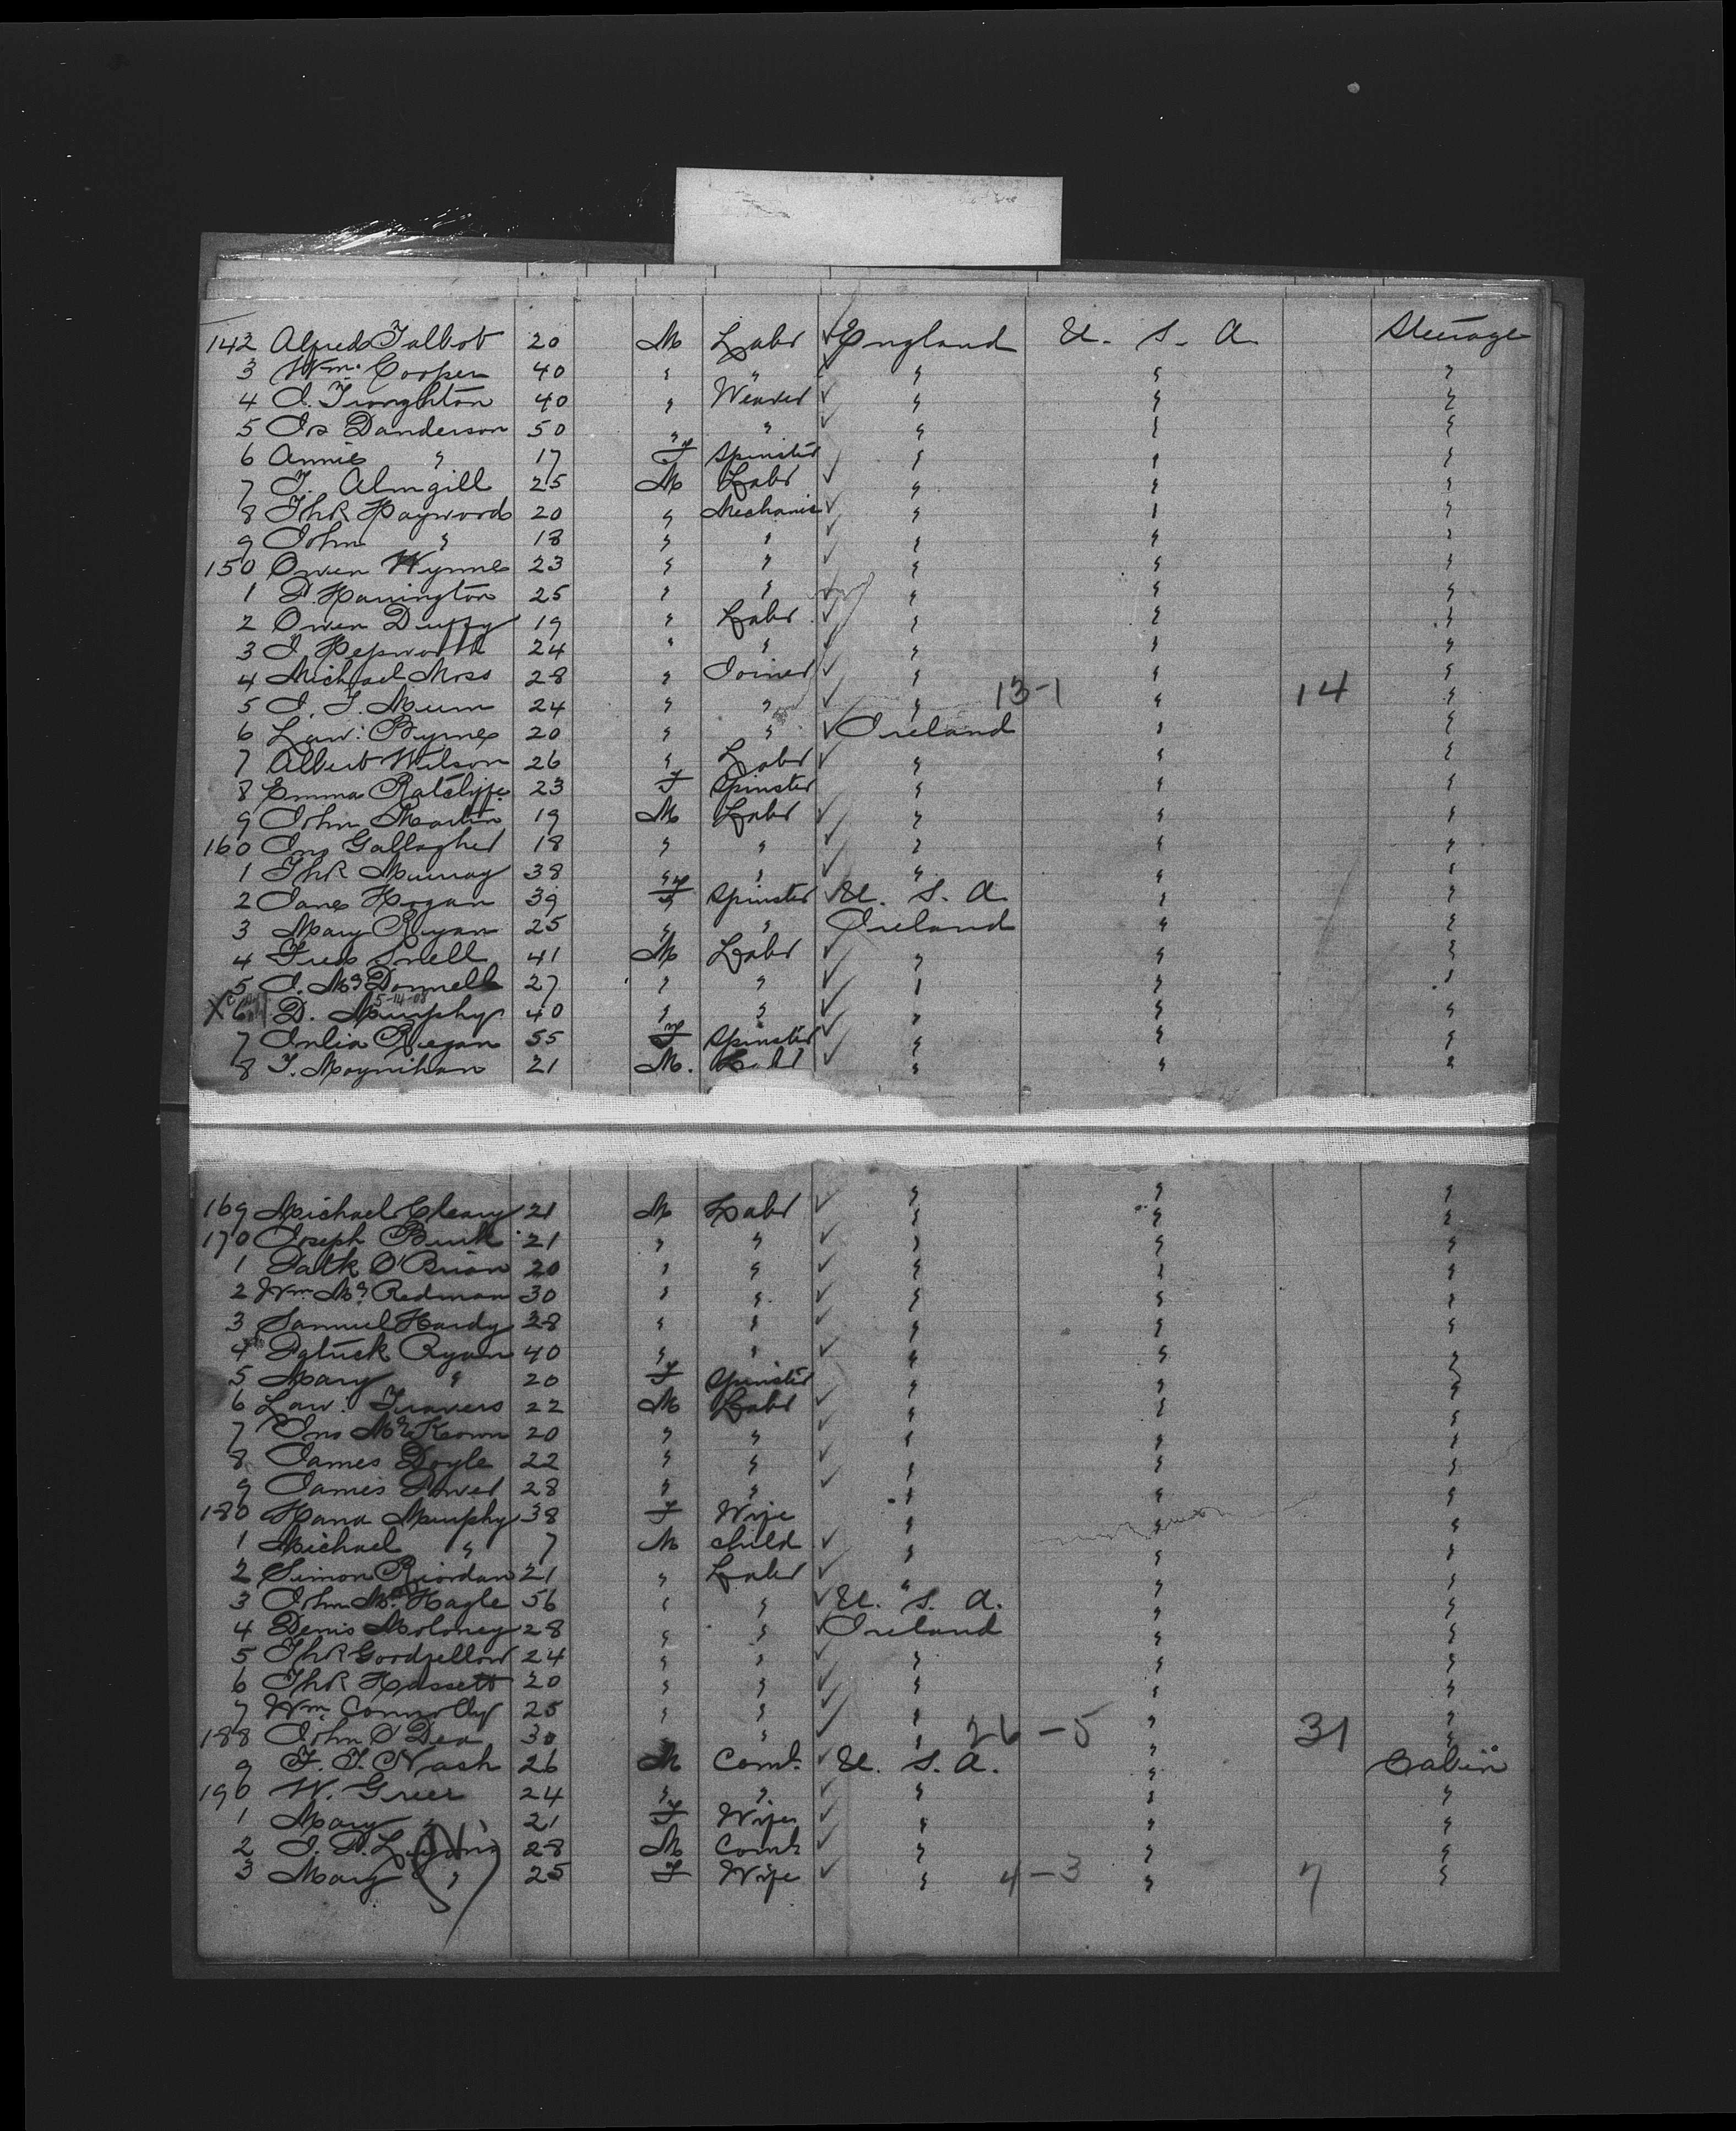 142 Alfred Talbot 20 M Labr ✓ England U. S. A Steerage
3 Wm. Cooper 40 " " ✓ " " "
4 J. Troughton 40 " Weaver ✓ " " "
5 Jos Danderson 50 " " ✓ " " "
6 Annie " 17 F Spinster ✓ " " "
7 T. Almgill 25 M Labr ✓ " " "
8 Thos Haywood 20 " Mechanic ✓ " " "
9 John " 18 " " ✓ " " "
150 Owen Wynne 23 " " ✓ " " "
1 P. Harrington 25 " " ✓ " " "
2 Owen Duffy 19 " Labr ✓ " " "
3 J. Hepworth 24 " " ✓ " " "
4 Michael Moss 28 " Joiner ✓ " " "
5 J. J. Munn 24 " " ✓ " 13-1 " 14 "
6 Law: Byrnes 20 " " ✓ Ireland " "
7 Albert Wilson 26 " Labr ✓ " " "
8 Emma Ratcliffe 23 F Spinster " " "
9 John Martin 19 M Labr ✓ " " "
160 Jno Gallagher 18 " " ✓ " " "
1 Thos Murray 38 " " ✓ " " "
2 Jane Hogan 39 F Spinster ✓ U. S. A. " "
3 Mary Ryan 25 " " Ireland " "
4 Fred Snell 41 M Labr ✓ " " "
5 J. McDonnell 27 " " ✓ " " "
X 6 D. Murphy 5-14-08 40 " " ✓ " " "
7 Julia Regan 55 F Spinster ✓ " " "
8 T. Moynihan 21 M. Labr ✓ " " "
169 Michael Cleary 21 M Labr ✓ " " "
170 Joseph Burk 21 " " ✓ " " "
1 Patk O'Brien 20 " " ✓ " " "
2 Wm. Mc Redman 30 " " ✓ " " "
3 Samuel Hardy 28 " " ✓ " " "
4 Patrick Ryan 40 " " ✓ " " "
5 Mary " 20 F Spinster " " "
6 Law: Travers 22 M Labr ✓ " " "
7 Jno McKeown 20 " " ✓ " " "
8 James Doyle 22 " " ✓ " " "
9 James Power 28 " " ✓ " " "
180 Hana Murphy 38 F Wife " " "
1 Michael " 7 M child ✓ " " "
2 Simon Riordan 21 " Labr ✓ " " "
3 John Mc Hagle 56 " " ✓ U. S. A. " "
4 Denis Moloney 28 " " ✓ Ireland " "
5 Thos Goodfellow 24 " " ✓ " " "
6 Thos Hassett 20 " " ✓ " " "
7 Wm. Connolly 25 " " ✓ " " "
188 John O'Dea 30 " " ✓ " 26-5 " 31 "
9 F. T. Nash 26 M Comt. ✓ U. S. A. " Cabin
190 W. Greer 24 " " ✓ " " "
1 Mary " 21 F Wife ✓ " " "
2 28 M Comt ✓ " " "
3 Mary " 25 F Wife ✓ " 4-3 " 7 "